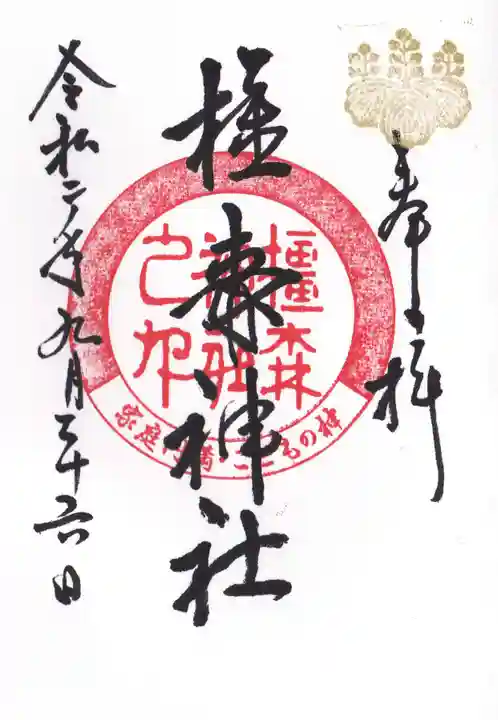 奉拝
橿森神社
令和二年九月二十六日
橿森
神社
之印
家庭円満・こどもの神